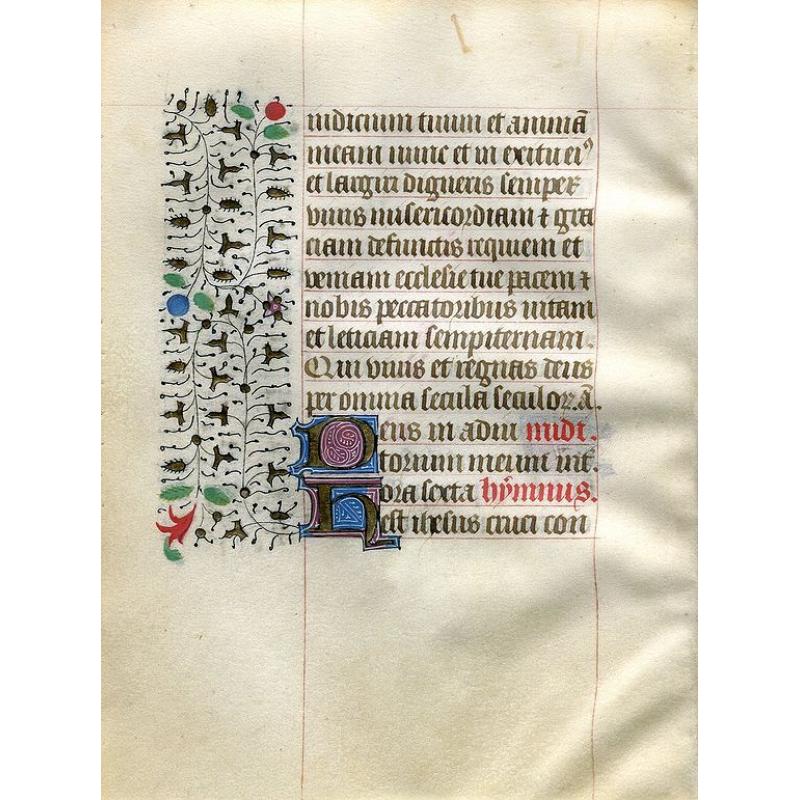 iudicium tuum et animā
meam nunc et in exitu eiꝰ
et largiri digneris semper
viuis misericordiam ⁊ gra
ciam defunctis requiem et
veniam ecclesie tue pacem ⁊
nobis peccatoribus uitam
et leticiam sempiternam.
Qui viuis et regnas deus
per omnia secula seculoꝝ. ā.
Deus in adiu midi.
torium meum int.
Hora sexta hÿmnus.
est ihesus cruci con